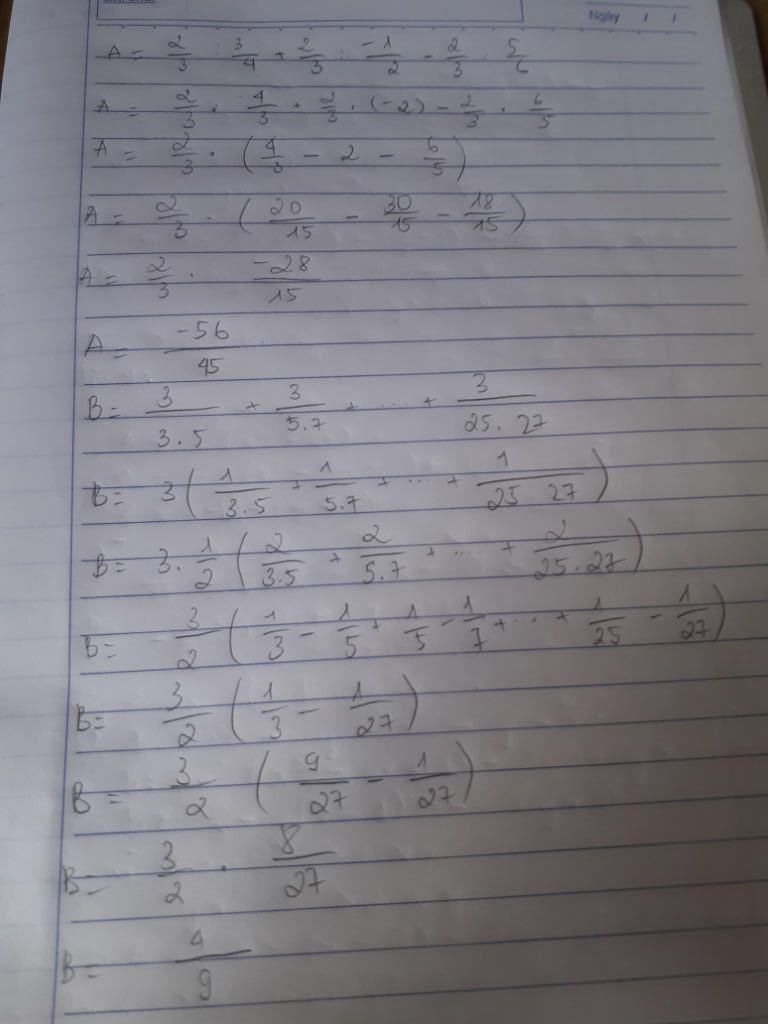 Ngày / /
A = 2/3 : 3/4 + 2/3 : -1/2 - 2/3 : 5/6
A = 2/3 . 4/3 + 2/3 . (-2) - 2/3 . 6/5
A = 2/3 . (4/3 - 2 - 6/5)
A = 2/3 . (20/15 - 30/15 - 18/15)
A = 2/3 . -28/15
A = -56/45
B = 3/3.5 + 3/5.7 + ... + 3/25.27
B = 3(1/3.5 + 1/5.7 + ... + 1/25 27)
B = 3.1/2(2/3.5 + 2/5.7 + ... + 2/25.27)
B = 3/2(1/3 - 1/5 + 1/5 - 1/7 + ... + 1/25 - 1/27)
B = 3/2(1/3 - 1/27)
B = 3/2 (9/27 - 1/27)
B = 3/2 . 8/27
B = 4/9